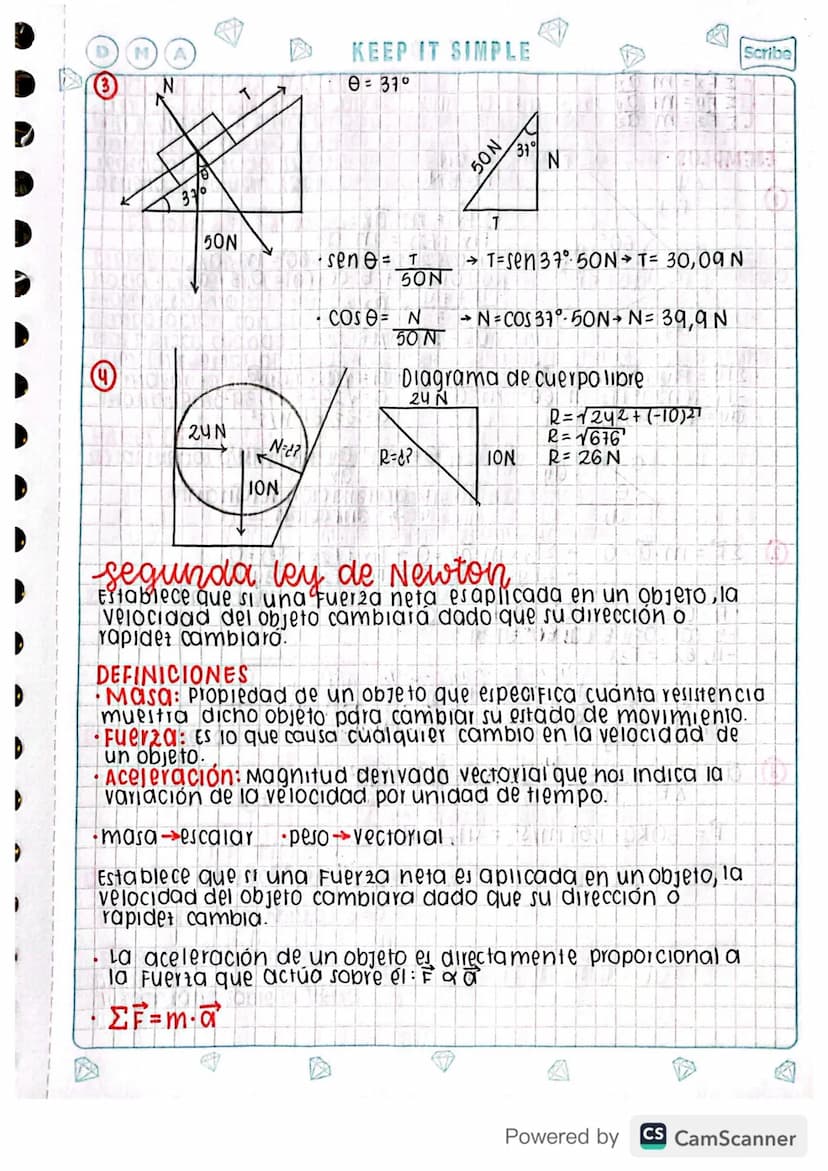 D M A
KEEP IT SIMPLE
Scribe
3
N
T
θ = 37°
θ
37°
50N
50N
37°
N
T
· sen θ = T / 50N → T=sen37°·50N → T= 30,09 N
· cos θ = N / 50 N → N=cos37°·50N → N= 39,9 N
4
Diagrama de cuerpo libre
24N
N=¿?
10N
24 N
R=¿?
10N
R=√24² + (-10)²
R=√676
R= 26N
segunda ley de Newton
Establece que si una Fuerza neta es aplicada en un objeto, la
velocidad del objeto cambiará dado que su dirección o
rapidez cambiará.
DEFINICIONES
· Masa: Propiedad de un objeto que especifica cuánta resistencia
muestra dicho objeto para cambiar su estado de movimiento.
· Fuerza: Es lo que causa cualquier cambio en la velocidad de
un objeto.
· Aceleración: Magnitud derivada vectorial que nos indica la
variación de la velocidad por unidad de tiempo.
· masa → escalar · peso → vectorial.
Establece que si una Fuerza neta es aplicada en un objeto, la
velocidad del objeto cambiara dado que su dirección o
rapidez cambia.
· La aceleración de un objeto es directamente proporcional a
la Fuerza que actúa sobre él: F⃗ α a⃗
· ΣF⃗ = m·a⃗
Powered by CS CamScanner